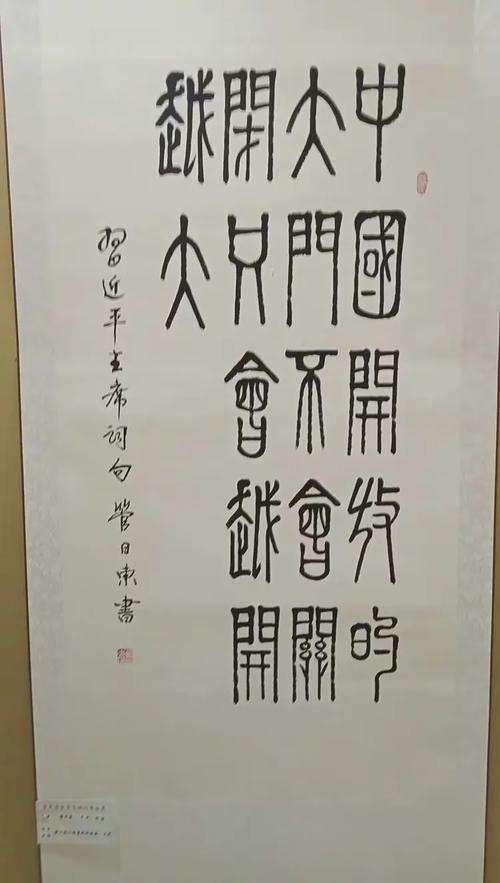 中國開放的
大門不會關
閉只會越開
越大
習近平主席詞句 管日東書